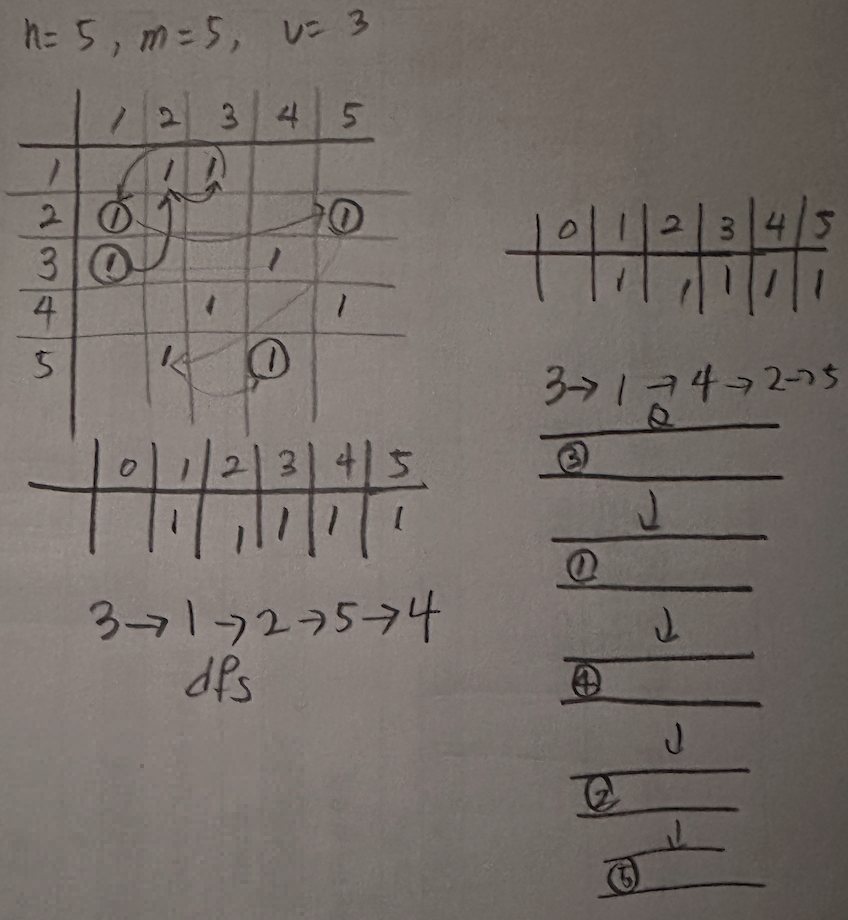 n= 5, m=5, v= 3
1 2 3 4 5
1 1 1
2 1 1
3 1 1
4 1 1
5 1 1
0 1 2 3 4 5
1 1 1 1 1
3→1→2→5→4
dfs
0 1 2 3 4 5
1 1 1 1 1
3→1→4→2→5
Q
3
↓
1
↓
4
↓
2
↓
5